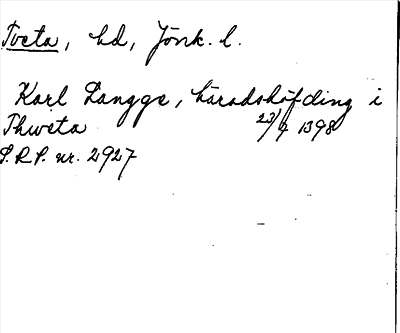 Tveta, hd, Jönk. l.
Karl Langge, häradshöfding i
Thweta 23/4 1398
S.R.P. nr. 2927